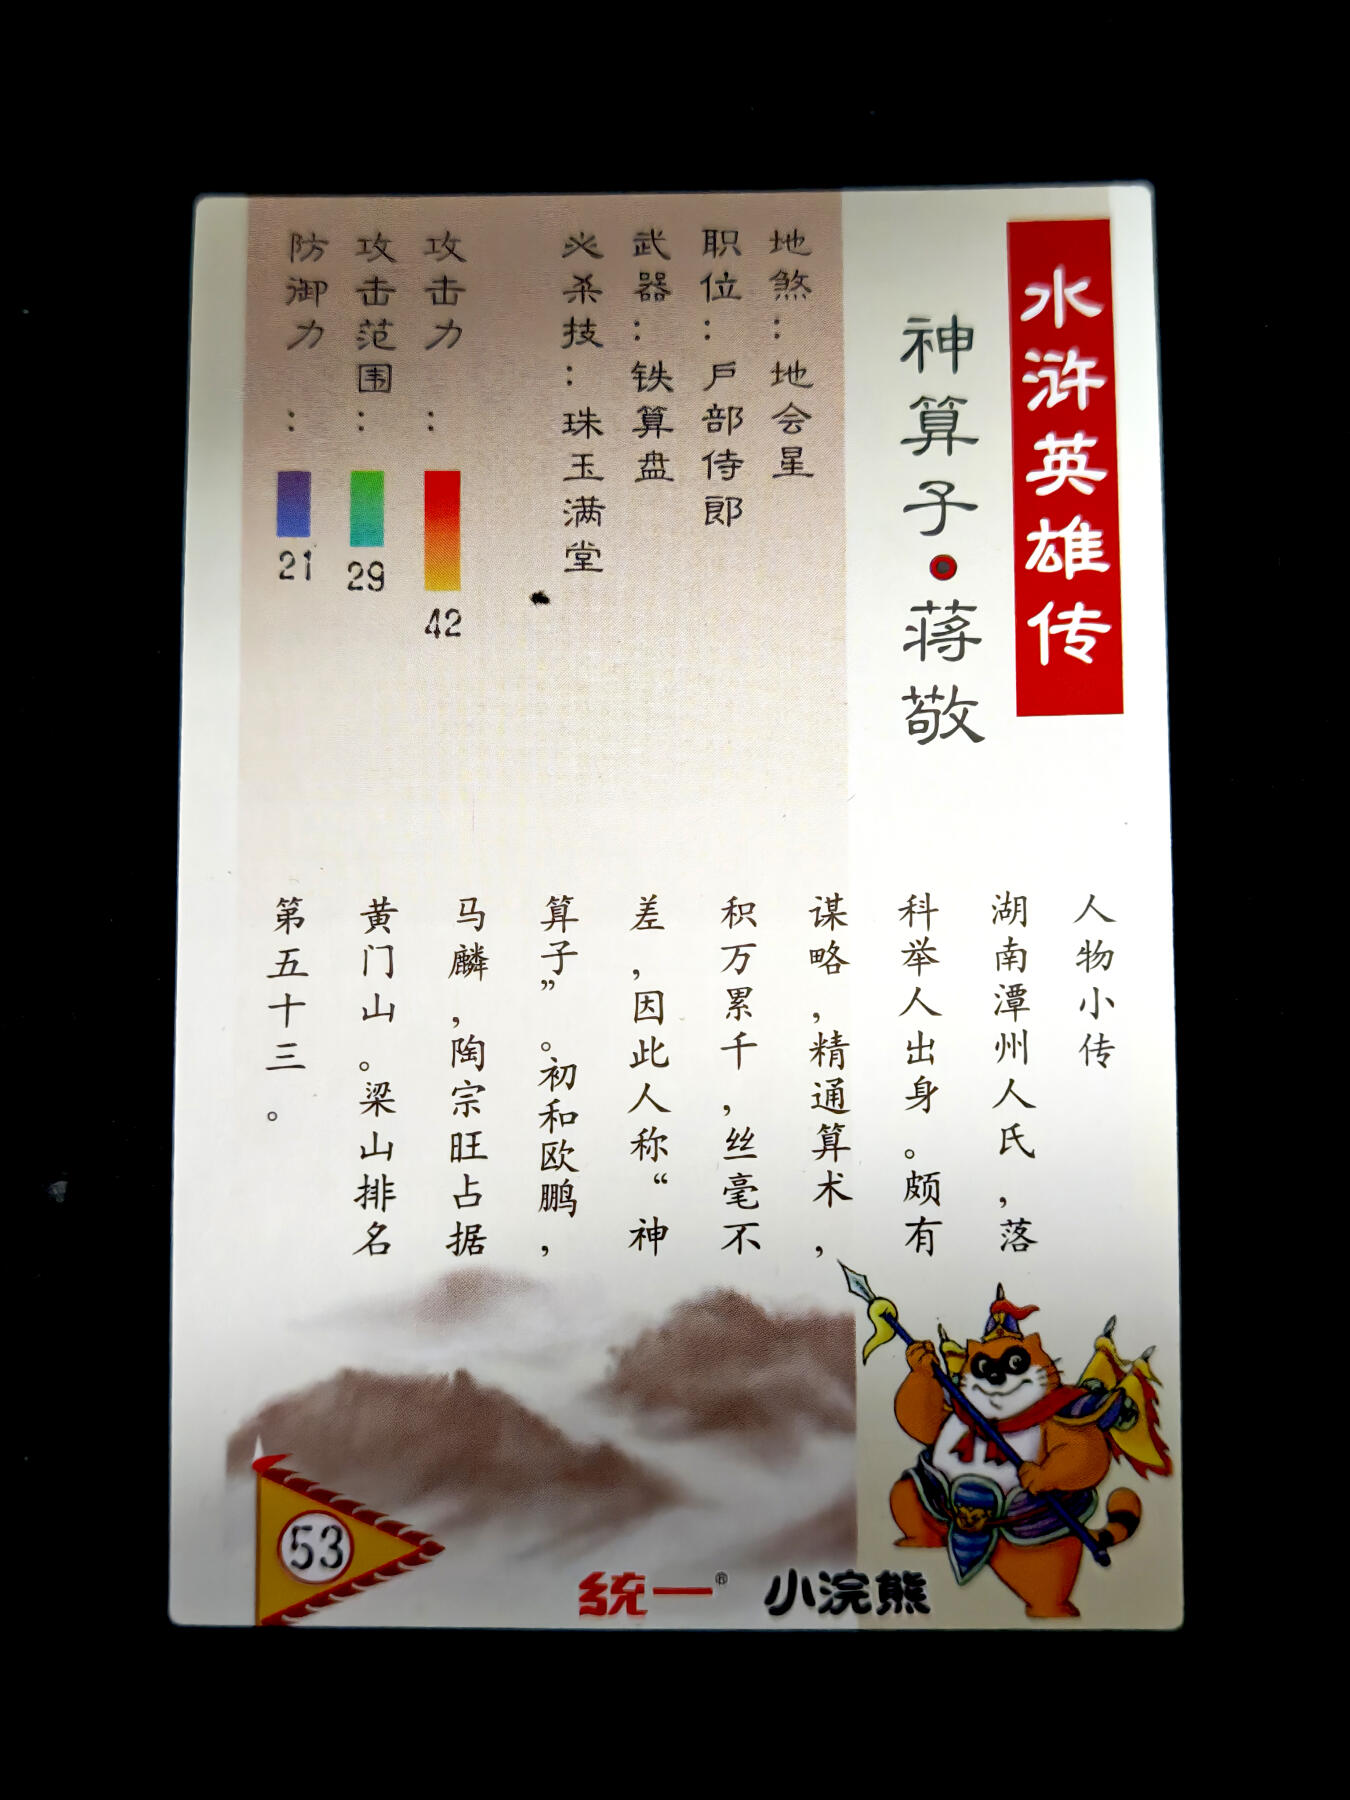 水浒英雄传
神算子·蒋敬
地煞：地会星
职位：户部侍郎
武器：铁算盘
必杀技：珠玉满堂
攻击力：42
攻击范围：29
防御力：21
人物小传
湖南潭州人氏，落
科举人出身。颇有
谋略，精通算术，
积万累千，丝毫不
差，因此人称“神
算子”。初和欧鹏，
马麟，陶宗旺占据
黄门山。梁山排名
第五十三。
53
统一® 小浣熊